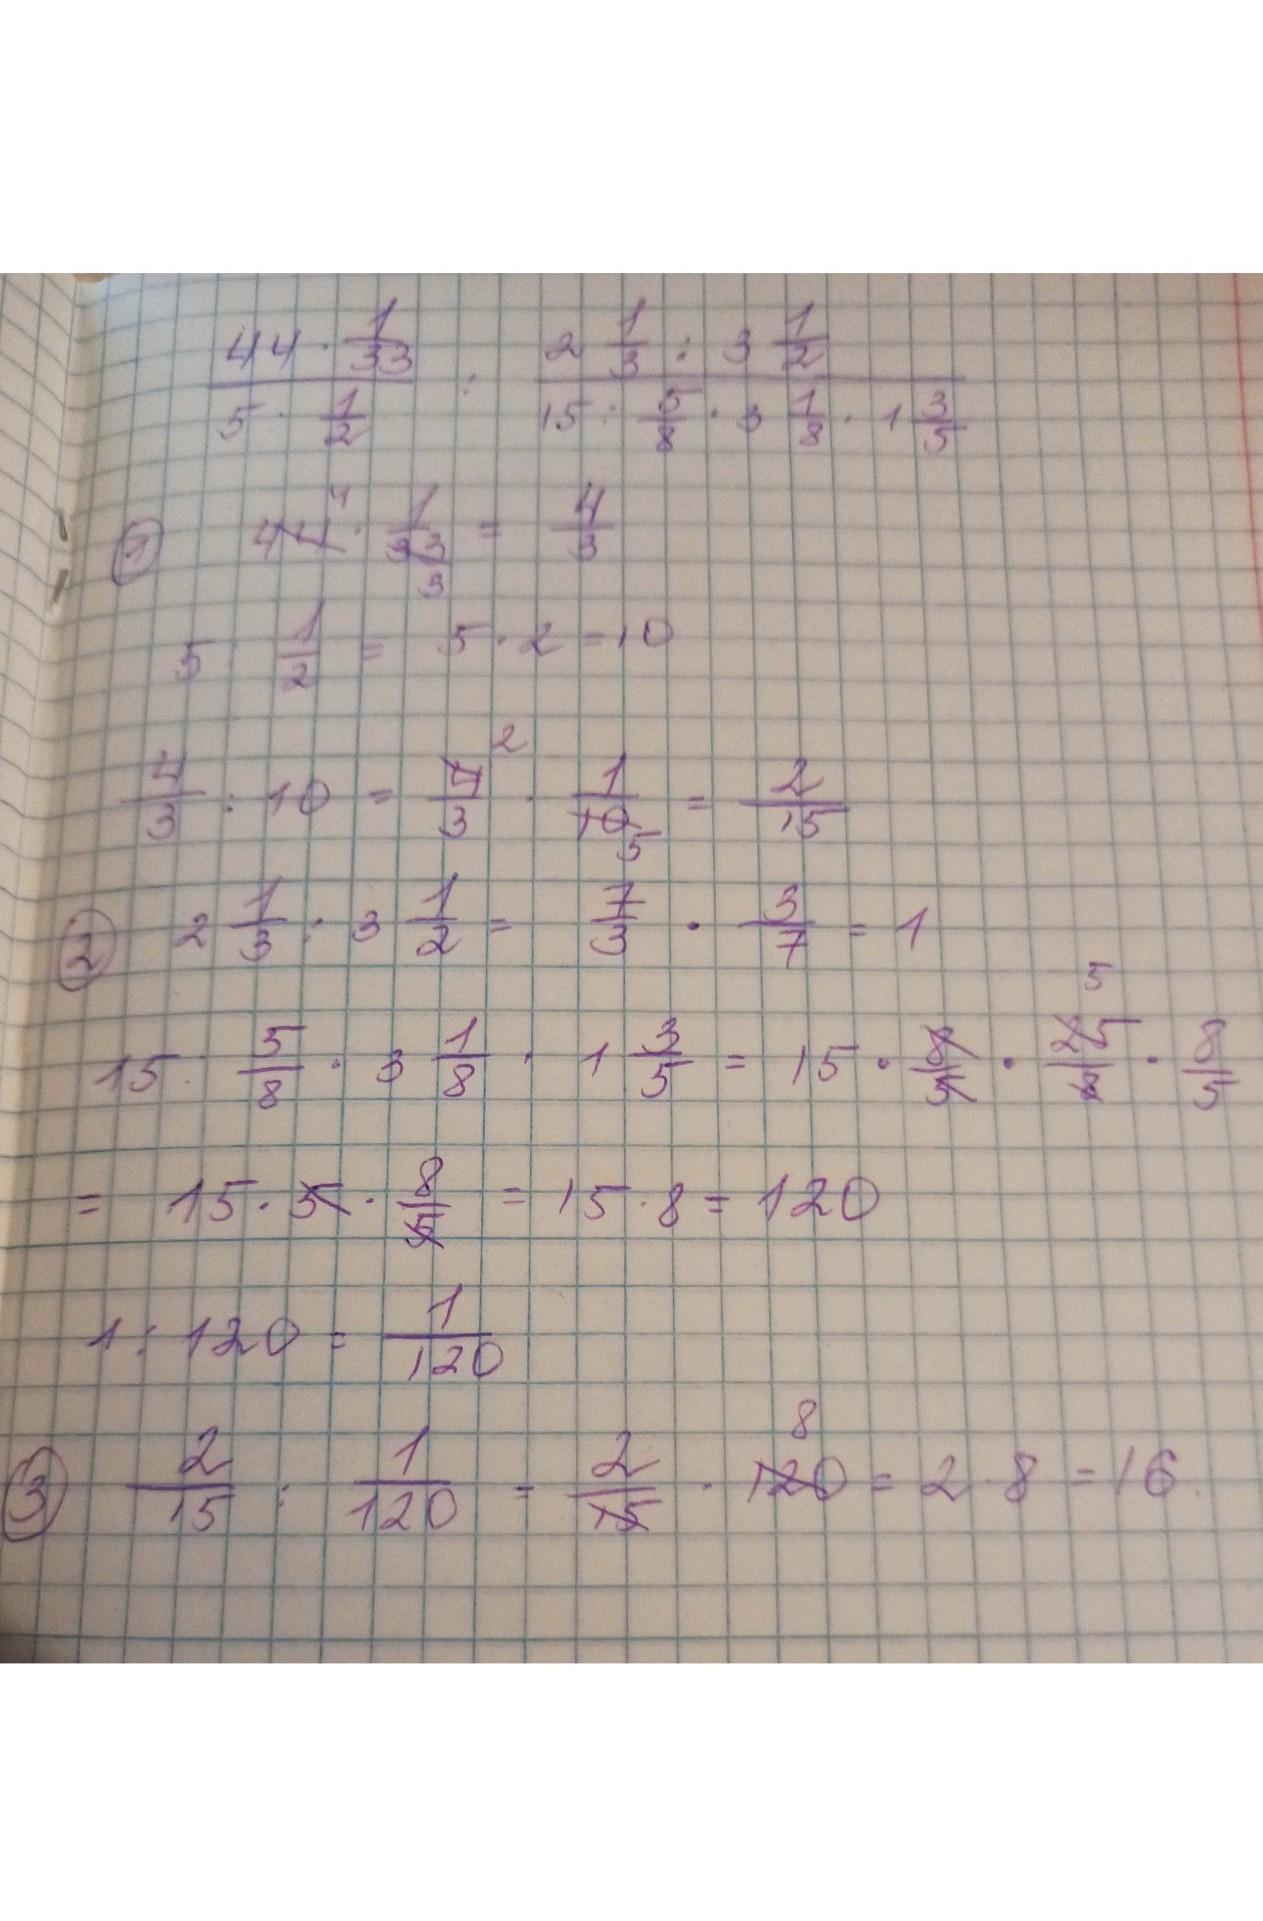 44 · 1/33 / 5 : 1/2 : 2 1/3 : 3 1/2 / 15 : 5/8 · 3 1/8 · 1 3/5
① 44 4 · 1/33 3 = 4/3
5 : 1/2 = 5 · 2 = 10
4/3 : 10 = 4/3 2 · 1/10 5 = 2/15
② 2 1/3 : 3 1/2 = 7/3 · 3/7 = 1
15 : 5/8 · 3 1/8 · 1 3/5 = 15 · 8/5 · 25/8 5 · 8/5
= 15 · 5 · 8/5 = 15 · 8 = 120
1 : 120 = 1/120
③ 2/15 : 1/120 = 2/15 · 120 8 = 2 · 8 = 16.